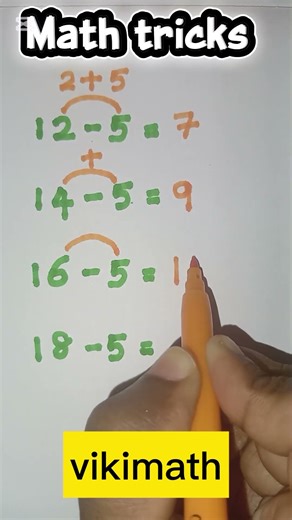 Math tricks
2+5
12-5=7
+
14-5=9
16-5=1
18-5=
vikimath